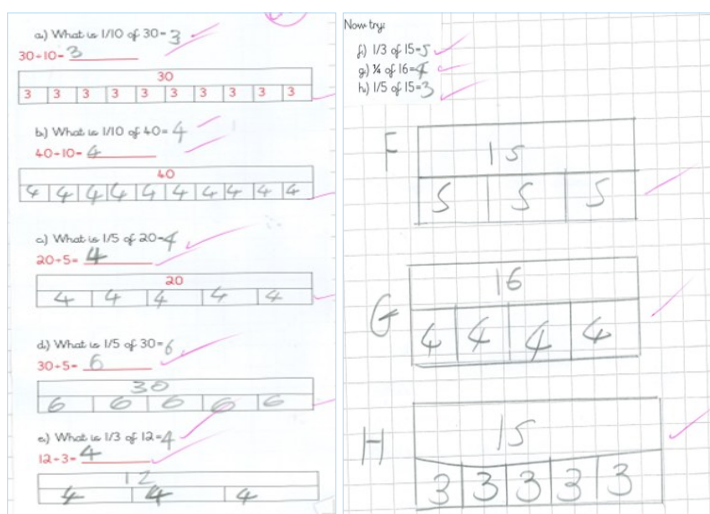 a) What is 1/10 of 30= 3
30÷10= 3
30
3 3 3 3 3 3 3 3 3 3
b) What is 1/10 of 40= 4
40÷10= 4
40
4 4 4 4 4 4 4 4 4 4
c) What is 1/5 of 20= 4
20÷5= 4
20
4 4 4 4 4
d) What is 1/5 of 30= 6
30÷5= 6
30
6 6 6 6 6
e) What is 1/3 of 12= 4
12÷3= 4
12
4 4 4
Now try:
f) 1/3 of 15= 5
g) ¼ of 16= 4
h) 1/5 of 15= 3
F
15
5 5 5
G
16
4 4 4 4
H
15
3 3 3 3 3